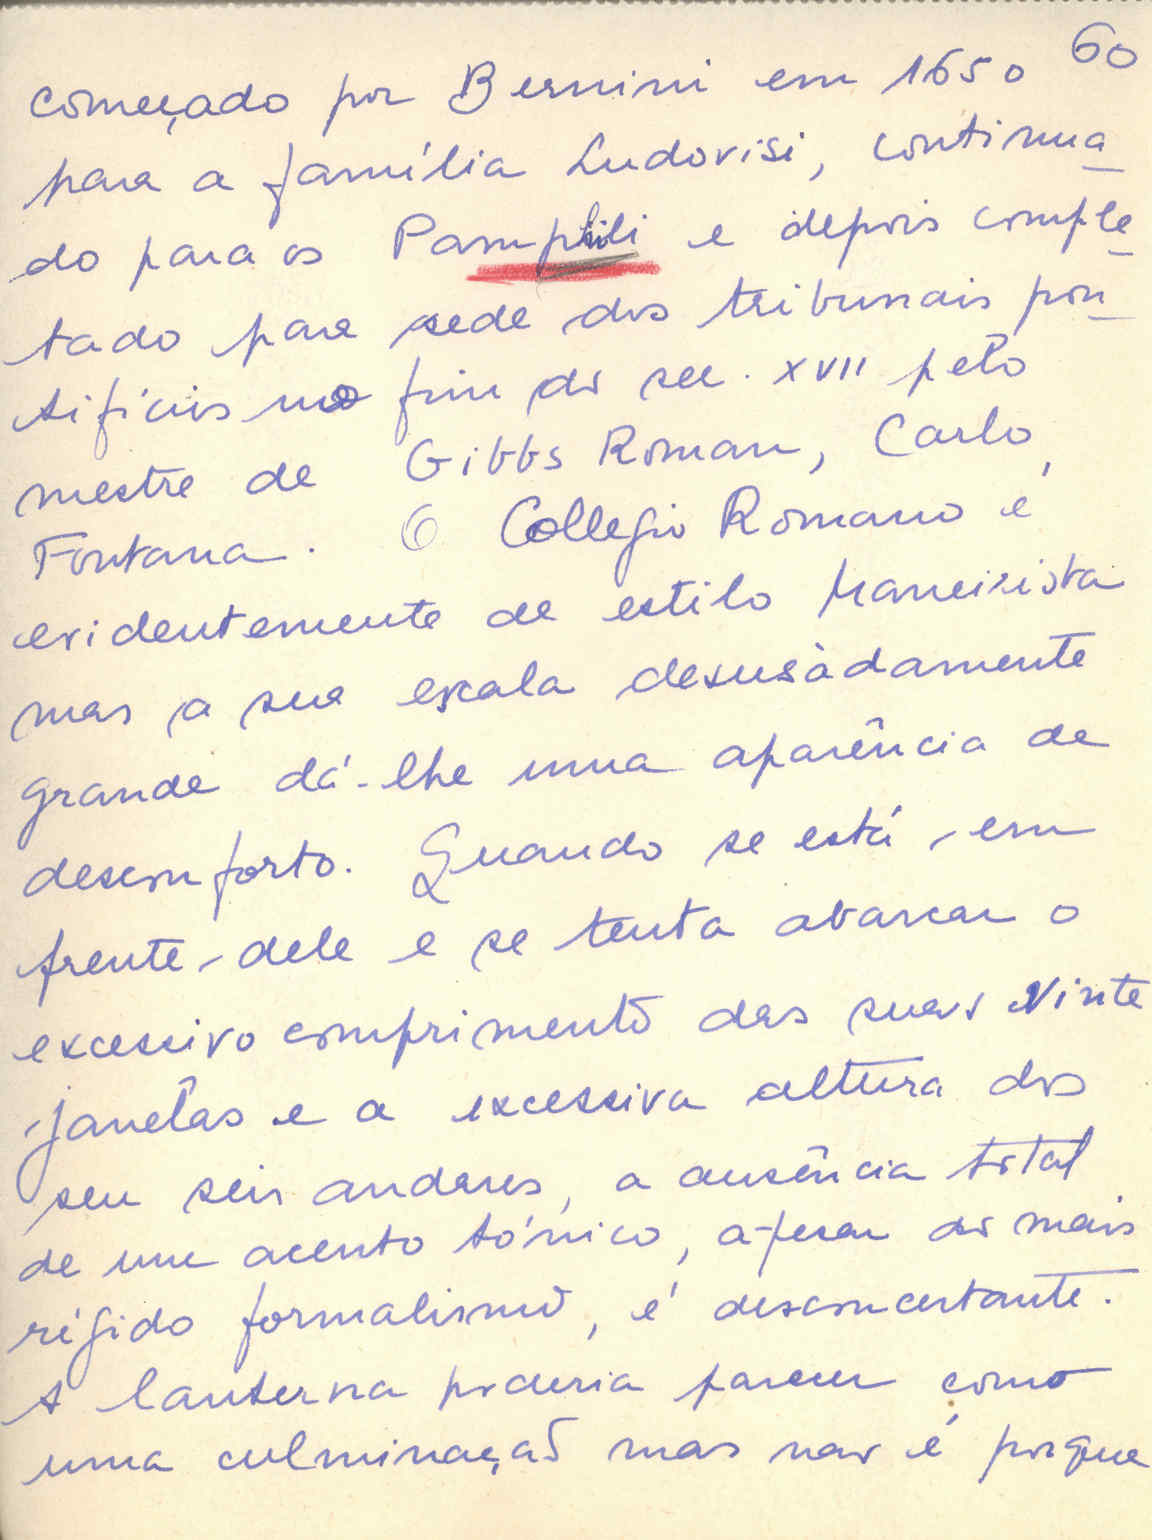 60
começado por Bernini em 1650
para a família Ludovisi, continua
do para os Pamphili e depois comple
tado para sede dos tribunais pon
tifícios no fim do sec. XVII pelo
mestre de Gibbs Roman, Carlo
Fontana. O Collegio Romano é
evidentemente de estilo Maneirista
mas a sua escala desusàdamente
grande dá-lhe uma aparência de
desconforto. Quando se está em
frente dele e se tenta abarcar o
excessivo comprimento das suas vinte
janelas e a excessiva altura dos
seu seis andares, a ausência total
de um acento tónico, apesar do mais
rígido formalismo, é desconcertante.
A lanterna poderia parecer como
uma culminação mas não é porque